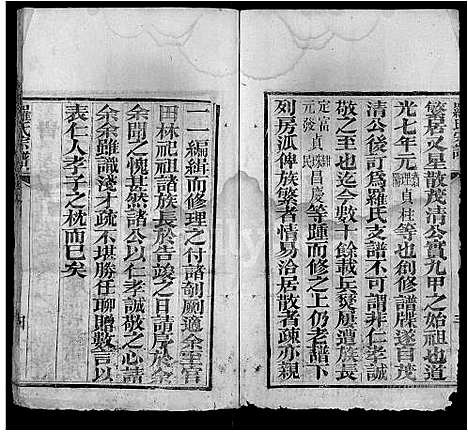 繁居又星散茂清公實九甲之始祖也道
光七年元貞柱等也創修譜牒遂自茂
清公後訂爲羅氏支譜不可謂非仁孝誠
敬之至也迄今數十餘載兵燹頻遭族長
定富貞昌慶等踵而修之上仍老譜下
元發民
列房派俾族繁者情易洽居散者疎亦親
一一編緝而修理之付諸剞劂適余至官
田林祀祖諸族長於告竣之日請序於余
余聞之愧甚然諸公以仁孝誠敬之心請
余余雖識淺才疏不堪勝任聊贈數言以
表仁人孝子之忱而已矣
羅氏宗譜